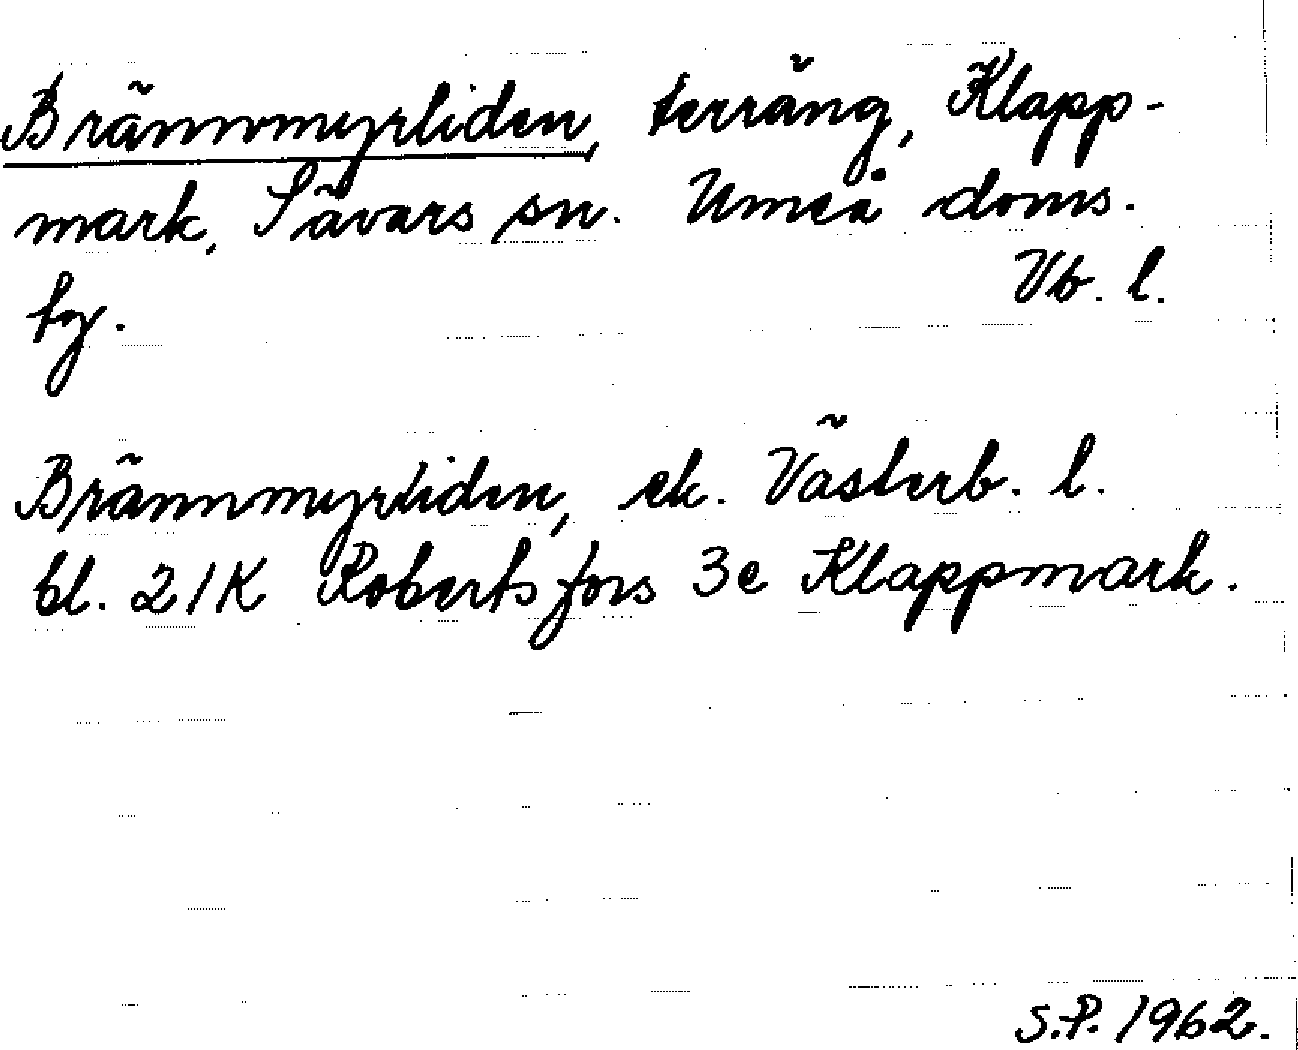 Brännmyrliden, terräng, Klapp-
mark, Sävars sn. Umeå doms.
by. Vb. l.
Brännmyrliden, ek. Västerb. l.
bl. 21K Robertsfors 3e Klappmark.
S.P. 1962.